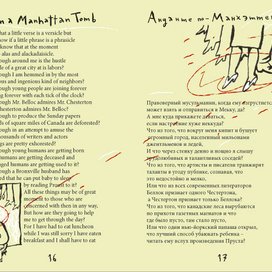 n a Manhattan Tomb
at a little verse is a versicle but
ow if a little phrase is a phrasicle
know that at the moment
alas and alackadaisicle.
ough around me is the hustle
le of a great city at is labors?
ough I am hemmed in by the most
ous and ingenious kind of neighbors?
ough young people are joining forever
g forever with each tick of the clock?
ough Mr. Belloc admires Mr. Chesterton
hesterton admires Mr. Belloc?
ough to produce the Sunday papers
ds of square miles of Canada are deforested?
ough in an attempt to amuse the
ousands of writers and actors
gs are pretty exhorested?
ough young humans are getting born
humans are getting deceased and
ged humans are getting used to it?
ough a Bronxville husband has
ed that he can put baby to sleep
by reading Proust to it?
All these things may be of great
moment to those who are
concerned with them in any way,
But how are they going to help
me to get through the day?
For I have had to eat luncheon
while I was still sorry I have eaten
breakfast and I shall have to eat
16
Правоверный мусульманин, когда ему взгрустнется,
может взять и отправиться в Мекку, да?
А мне куда прикажете деваться,
если настроение хуже некуда?
Что из того, что вокруг меня кипит и бушует
огромный город, населенный милыми
джентльменов и леди,
И что через стенку денно и нощно я слышу
Что из того, что артисты и писатели транжирят
таланты в угоду публике, сознавая, что
это недостойно и мелко,
Или что из всех современных литераторов
Беллок признает одного Честертона,
а Честертон признает только Беллока?
Что из того, что канадские леса вырубаются
по прихоти газетных магнатов и что
где было густо, там стало пусто,
Или что один нью-йоркский папаша открыл,
что лучший способ убаюкать ребенка -
читать ему вслух произведения Пруста?
17